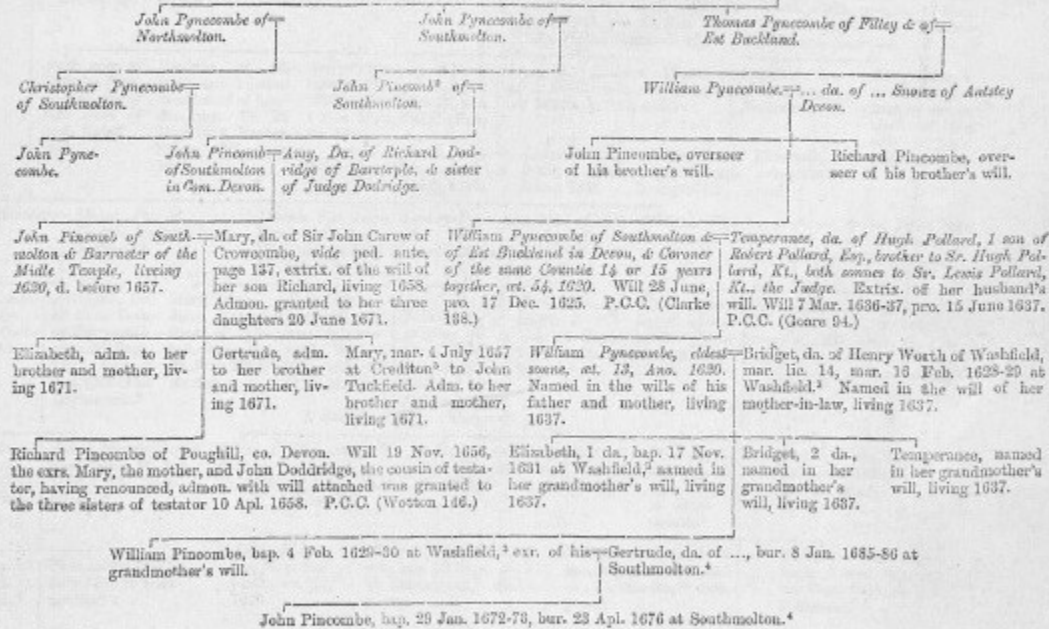 John Pynecombe of
Northmolton.
John Pynecombe of
Southmolton.
Thomas Pynecombe of Filley & of
Est Buckland.
Christopher Pynecombe
of Southmolton.
John Pincomb² of
Southmolton.
William Pynecombe. ... da. of ... Snowe of Antstey
Devon.
John Pyne-
combe.
John Pincomb
of Southmolton
in Com. Devon.
Amy, Da. of Richard Dod-
ridge of Barstaple, & sister
of Judge Dodridge.
John Pincombe, overseer
of his brother's will.
Richard Pincombe, over-
seer of his brother's will.
John Pincomb of South-
molton & Barraeter of the
Midle Temple, liveing
1620, d. before 1657.
Mary, da. of Sir John Carew of
Crowcombe, vide ped. ante,
page 137, extrix. of the will of
her son Richard, living 1658.
Admon. granted to her three
daughters 20 June 1671.
William Pynecombe of Southmolton &
of Est Buckland in Devon, & Coroner
of the same Countie 14 or 15 years
together, æt. 54, 1620. Will 28 June,
pro. 17 Dec. 1625. P.C.C. (Clarke
138.)
Temperance, da. of Hugh Pollard, 1 son of
Robert Pollard, Esq., brother to Sr. Hugh Pol-
lard, Kt., both sonnes to Sr. Lewis Pollard,
Kt., the Judge. Extrix. of her husband's
will. Will 7 Mar. 1636-37, pro. 15 June 1637.
P.C.C. (Goare 94.)
Elizabeth, adm. to her
brother and mother, liv-
ing 1671.
Gertrude, adm.
to her brother
and mother, liv-
ing 1671.
Mary, mar. 4 July 1657
at Crediton⁵ to John
Tuckfield. Adm. to her
brother and mother,
living 1671.
William Pynecombe, eldest
sonne, æt. 13, Ano. 1620.
Named in the wills of his
father and mother, living
1637.
Bridget, da. of Henry Worth of Washfield,
mar. lic. 14, mar. 16 Feb. 1628-29 at
Washfield.³ Named in the will of her
mother-in-law, living 1637.
Richard Pincombe of Poughill, co. Devon. Will 19 Nov. 1656,
the exrs. Mary, the mother, and John Doddridge, the cousin of testa-
tor, having renounced, admon. with will attached was granted to
the three sisters of testator 10 Apl. 1658. P.C.C. (Wotton 146.)
Elizabeth, 1 da., bap. 17 Nov.
1631 at Washfield,³ named in
her grandmother's will, living
1637.
Bridget, 2 da.,
named in her
grandmother's
will, living 1637.
Temperance, named
in her grandmother's
will, living 1637.
William Pincombe, bap. 4 Feb. 1629-30 at Washfield,³ exr. of his
grandmother's will.
Gertrude, da. of ..., bur. 8 Jan. 1685-86 at
Southmolton.⁴
John Pincombe, bap. 29 Jan. 1672-73, bur. 23 Apl. 1676 at Southmolton.⁴